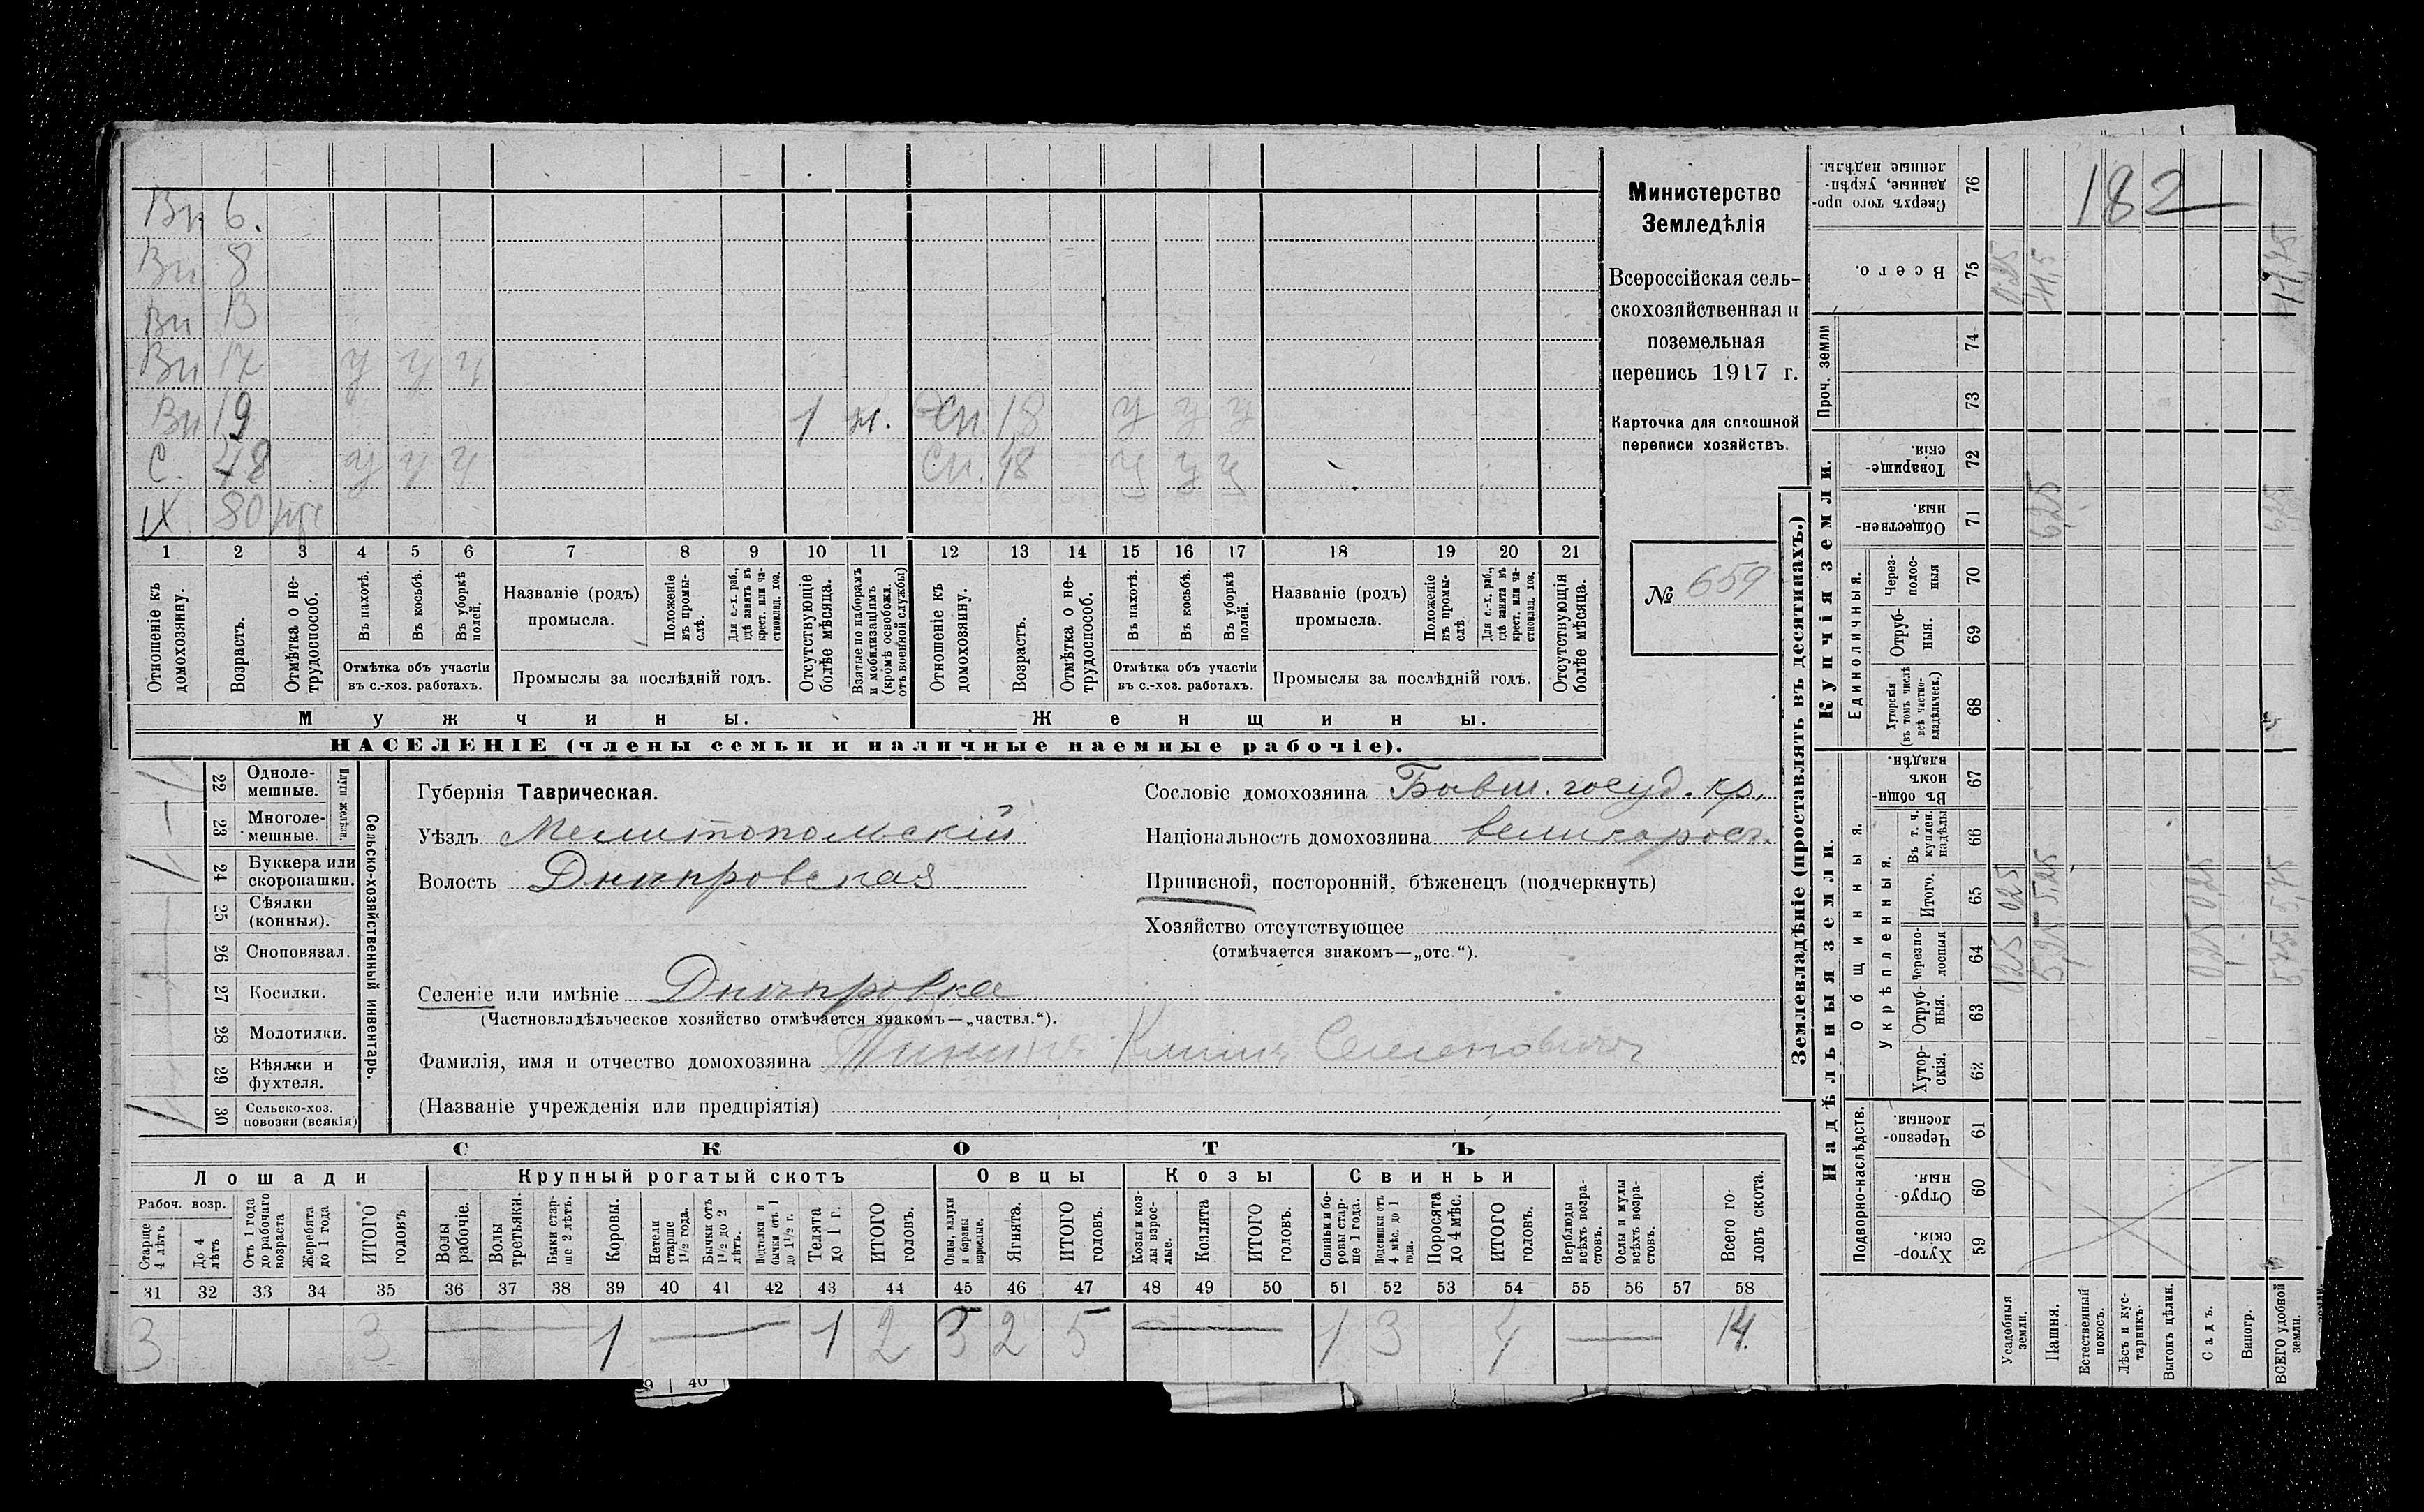 Вн 6.
Вн 8
Вн 13
Вн 17 у у у
Вн 19 1 н. Жн. 18 у у у
С. 48 у у у Сн. 48 у у у
IX. 80
1 2 3 4 5 6 7 8 9 10 11 12 13 14 15 16 17 18 19 20 21
Отношеніе къ домохозяину.
Возрастъ.
Отмѣтка о нетрудоспособ.
Въ пахотѣ.
Въ косьбѣ.
Въ уборкѣ полей.
Отмѣтка объ участіи въ с.-хоз. работахъ.
Названіе (родъ) промысла.
Положеніе въ промыслѣ.
Для с.-х. раб., гдѣ занятъ въ крест. или частновлад. хоз.
Промыслы за послѣдній годъ.
Отсутствующіе болѣе мѣсяца.
Взятые по наборамъ и мобилизаціямъ (кромѣ освобожд. отъ военной службы)
Отношеніе къ домохозяину.
Возрастъ.
Отмѣтка о нетрудоспособ.
Въ пахотѣ.
Въ косьбѣ.
Въ уборкѣ полей.
Отмѣтка объ участіи въ с.-хоз. работахъ.
Названіе (родъ) промысла.
Положеніе въ промыслѣ
Для с.-х. раб., гдѣ занята въ крест. или частновлад. хоз.
Промыслы за послѣдній годъ.
Отсутствующія болѣе мѣсяца.
Мужчины. Женщины.
НАСЕЛЕНІЕ (члены семьи и наличные наемные рабочіе).
Министерство
Земледѣлія
Всероссійская сель-
скохозяйственная и
поземельная
перепись 1917 г.
Карточка для сплошной
переписи хозяйствъ.
№ 659
Сельско-хозяйственный инвентарь.
Плуги желѣзн.
22 Одноле-мешные.
23 Многоле-мешные.
24 Буккера или скоропашки.
25 Сѣялки (конныя).
26 Сноповязал.
27 Косилки.
28 Молотилки.
29 Вѣялки и фухтеля.
30 Сельско-хоз. повозки (всякія)
Губернія Таврическая.
Уѣздъ Мелитопольскій
Волость Днѣпровская
Селеніе или имѣніе Днѣпровка
(Частновладѣльческое хозяйство отмѣчается знакомъ—„частвл.“).
Фамилія, имя и отчество домохозяина Климъ Семеновичъ
(Названіе учрежденія или предпріятія)
Сословіе домохозяина Бывш. госуд. кр.
Національность домохозяина великоросъ.
Приписной, посторонній, бѣженецъ (подчеркнуть)
Хозяйство отсутствующее
(отмѣчается знакомъ—„отс.“).
СКОТЪ
Лошади Крупный рогатый скотъ Овцы Козы Свиньи
Рабоч. возр.
Старше 4 лѣтъ
До 4 лѣтъ
Отъ 1 года до рабочаго возраста
Жеребята до 1 года
ИТОГО головъ
Волы рабочіе.
Волы третьяки.
Быки старше 2 лѣтъ.
Коровы.
Нетели старше 1 1/2 года.
Бычки отъ 1 1/2 до 2 лѣтъ.
Подтелки и бычки отъ 1 до 1 1/2 г.
Телята до 1 г.
ИТОГО головъ.
Овцы, валухи и бараны взрослые.
Ягнята.
ИТОГО головъ.
Козы и козлы взрослые.
Козлята
ИТОГО головъ.
Свиньи и боровы старше 1 года.
Подсвинки отъ 4 мѣс. до 1 года.
Поросята до 4 мѣс.
ИТОГО головъ.
Верблюды всѣхъ возрастовъ.
Ослы и мулы всѣхъ возрастовъ.
Всего головъ скота.
31 32 33 34 35 36 37 38 39 40 41 42 43 44 45 46 47 48 49 50 51 52 53 54 55 56 57 58
3 3 — 1 — 1 2 3 2 5 — 1 3 4 — 14.
Землевладѣніе (проставлять въ десятинахъ.)
Надѣльныя земли. Купчія земли. Проч. земли
Подворно-наслѣдств. Общинныя. Укрѣпленныя. Единоличныя.
Сверхъ того проданные, укрѣпленные надѣлы. 76 182
Всего. 75 0,25 11,5 11,75
74
73
Товарищескія. 72
Общественныя. 71 6,25 6,25
Черезполосныя 70
Отрубныя. 69
Хуторскія (въ томъ числѣ всѣ частновладѣльческ.) 68
Въ общинномъ владѣн. 67
Въ т. ч. куплен. надѣлы 66
Итого. 65 0,25 5,25 0,25 5,75
Черезполосныя 64 0,25 5,25 0,25 5,75
Отрубныя. 63
Хуторскія. 62
Черезполосныя 61
Отрубныя. 60
Хуторскія. 59
Усадебныя земли.
Пашня.
Естественный покосъ.
Лѣсъ и кустарникъ.
Выгонъ цѣлин.
Садъ.
Виногр.
ВСЕГО удобной земли.
9 40